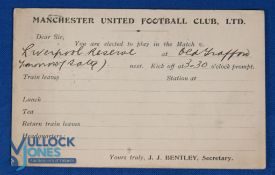 MANCHESTER UNITED FOOTBALL CLUB, LTD.
Dear Sir,
You are elected to play in the Match v.
Liverpool Reserve at Old Trafford
Tomorrow (Satdy) next. Kick off at 3-30 o'clock prompt.
Train leaves Station at
Lunch
Tea
Return train leaves
Headquarters
Yours truly, J. J. BENTLEY, Secretary.
MULLOCK
JONES